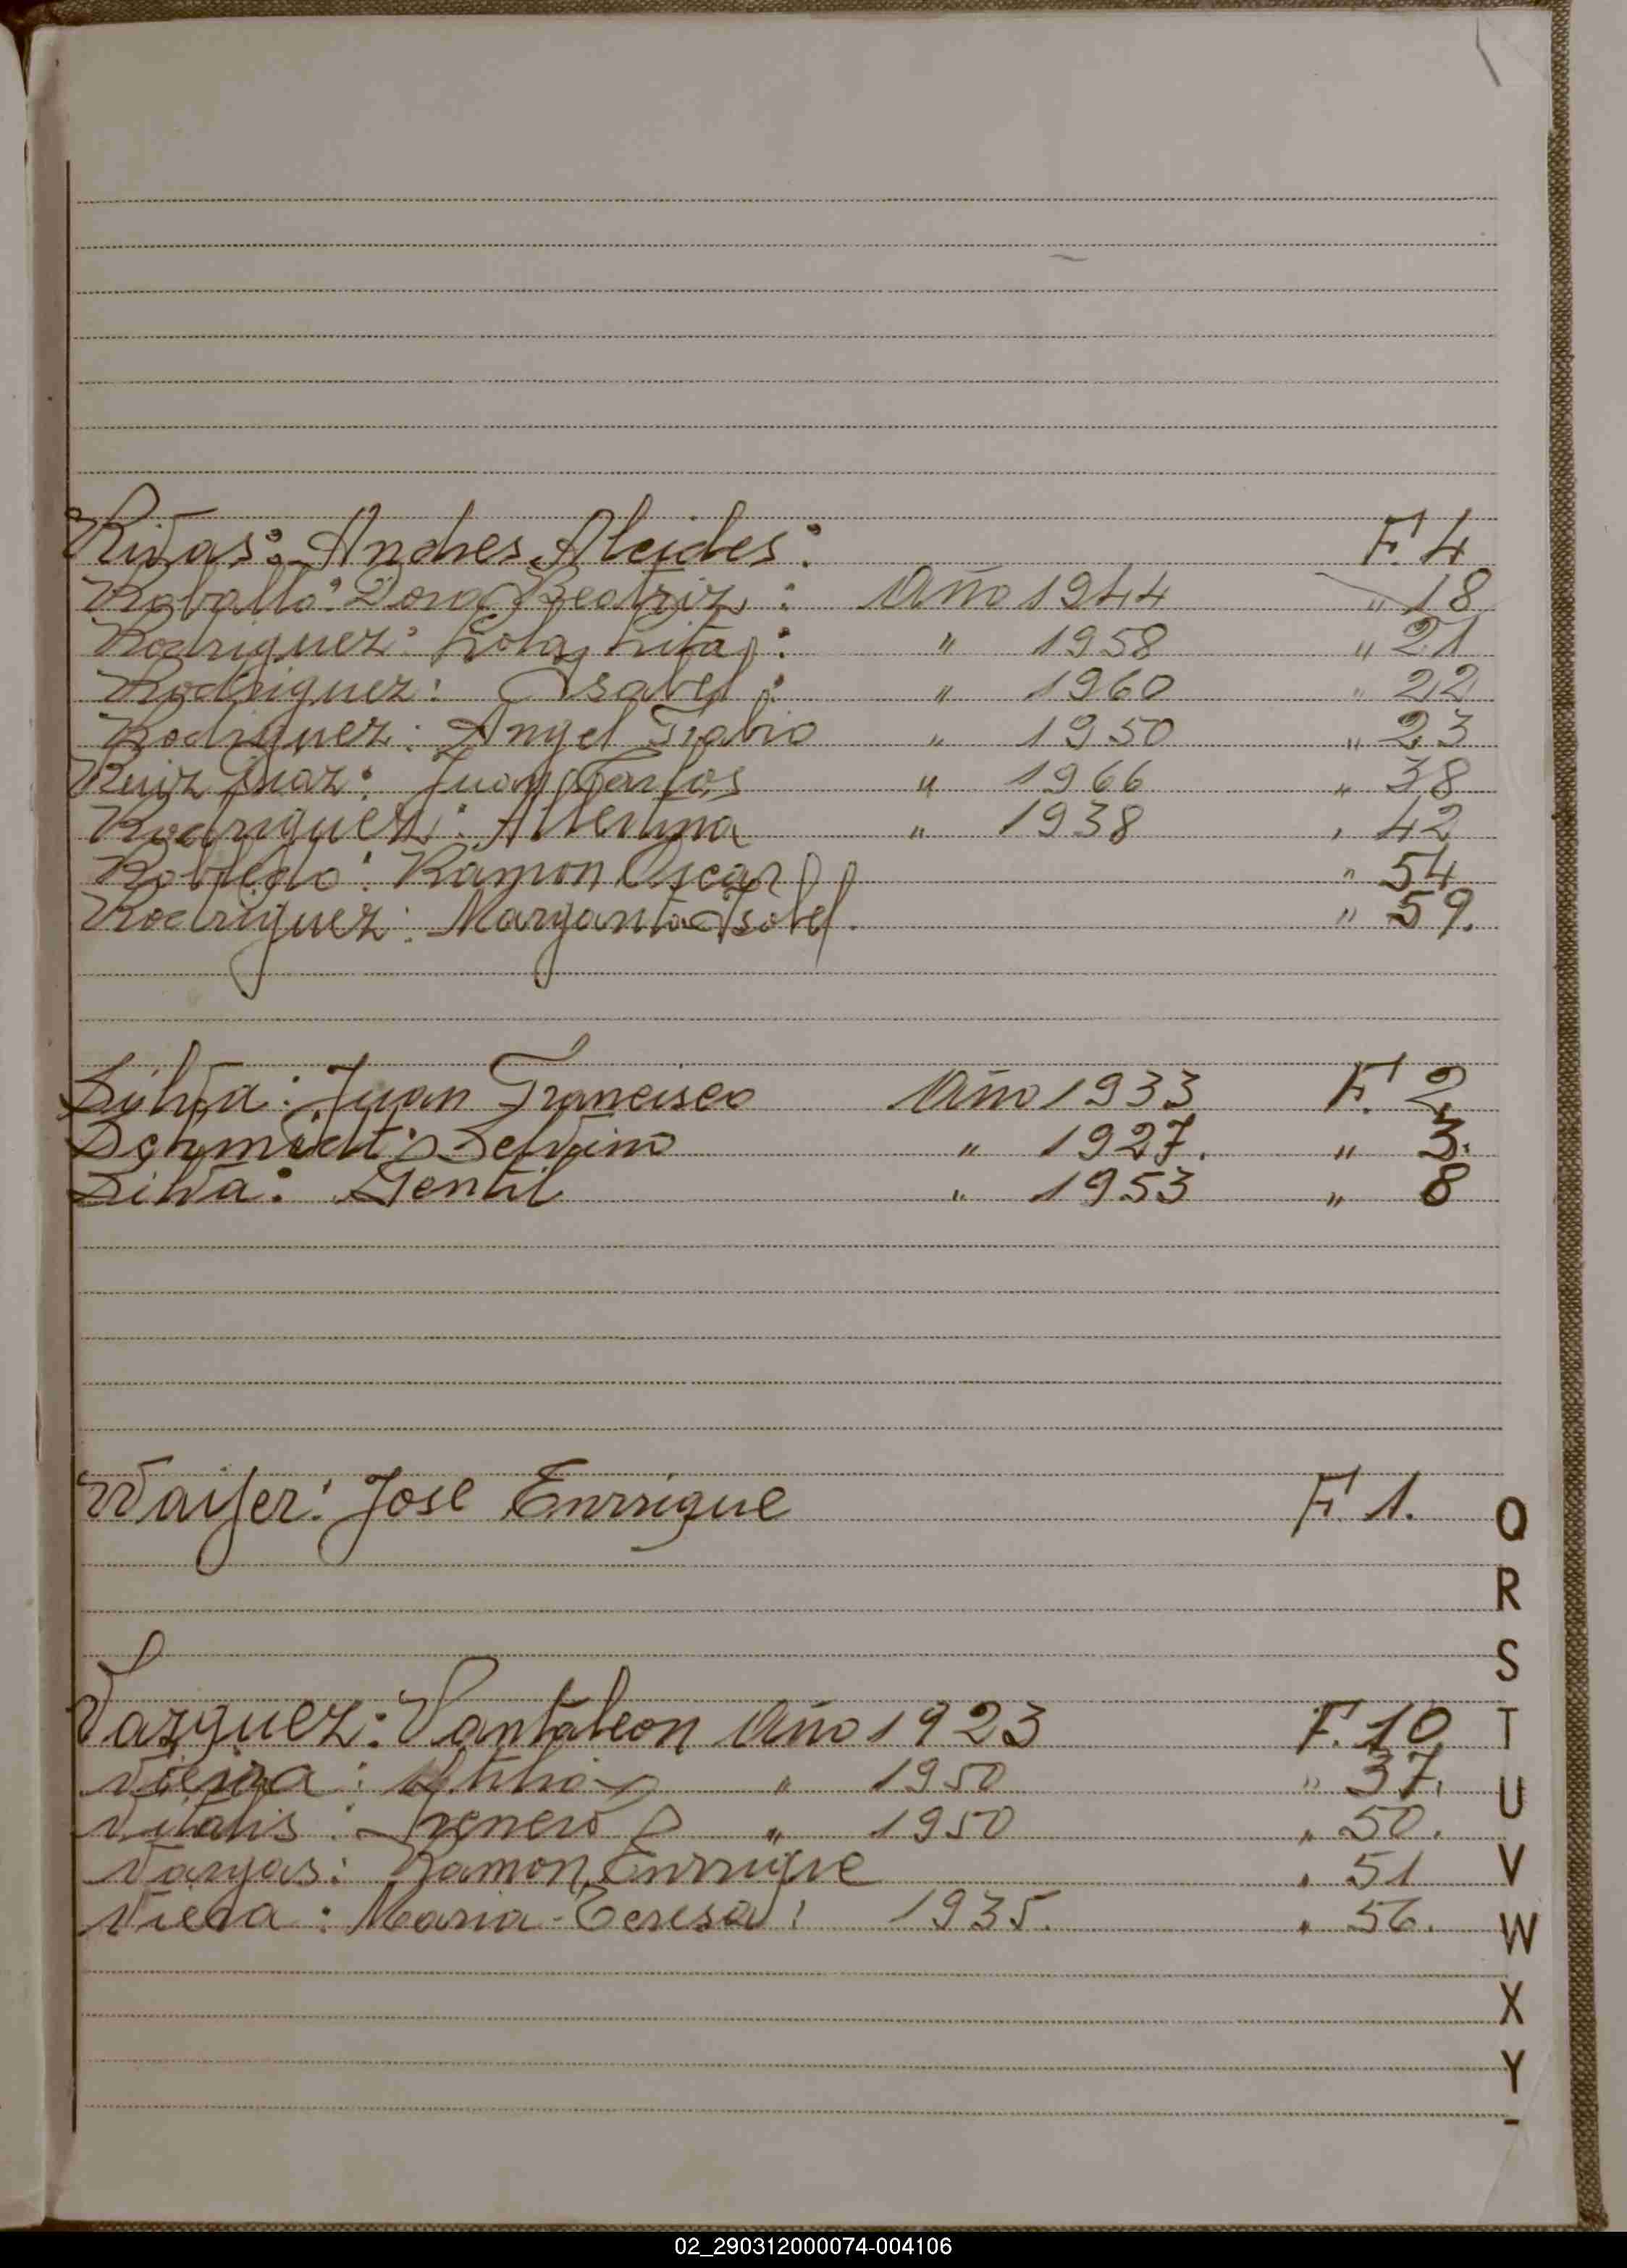 Rivas: Andres Alcides: F. 4
Roballo: Dora Beatriz: Año 1944 " 18
Rodriguez: Rita: " 1958 " 21
Rodriguez: Isabel: " 1960 " 22
Rodriguez: Angel " 1950 " 23
Ruiz Diaz: Juan Carlos " 1966 " 38
Rodriguez: Albertina " 1938 " 42
Robledo: Ramon Oscar " 54
Rodriguez: Margarita Isabel. " 59.
Silva: Juan Francisco Año 1933 F. 2
Schmidt: Selvino " 1927. " 3.
Silva: Gentil " 1953 " 8
Jose Enrrique F. 1.
Vazquez: Pantaleon Año 1923 F. 10
" 1950 " 37.
Vitalis: Ireneo " 1950 " 50.
Vargas: Ramon Enrrique " 51
Viera: Maria Teresa: 1935. " 56.
Q
R
S
T
U
V
W
X
Y
-
02_290312000074-004106